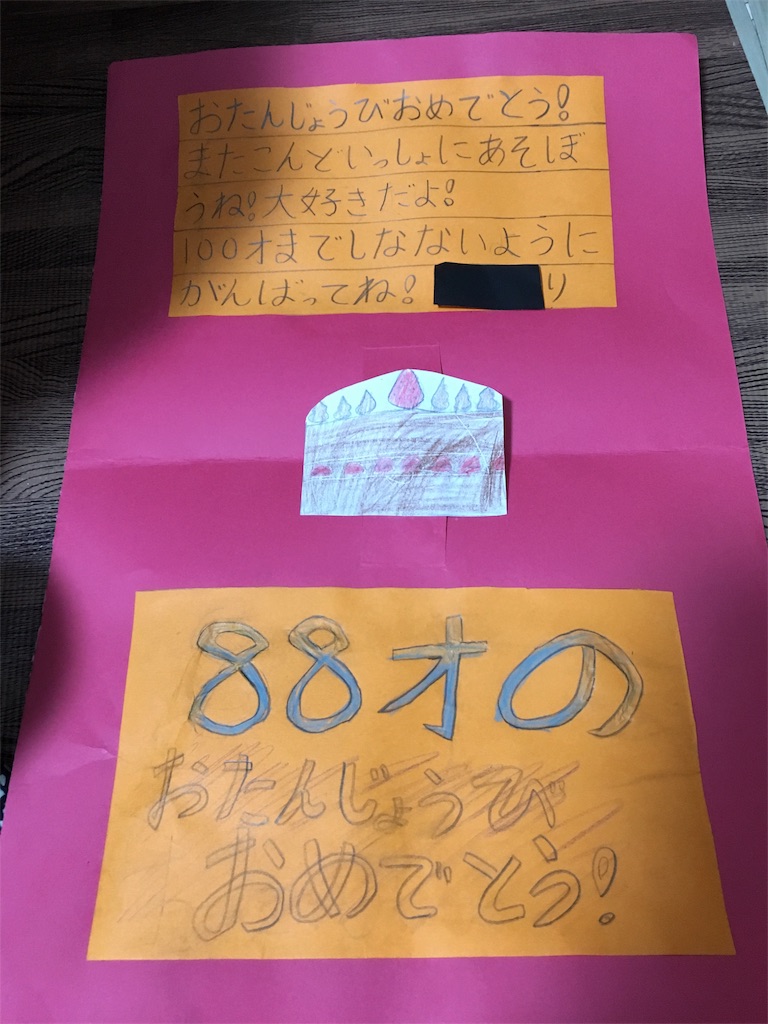 おたんじょうびおめでとう!
またこんどいっしょにあそぼ
うね!大好きだよ!
100才までしなないように
がんばってね! り
88才の
おたんじょうび
おめでとう!